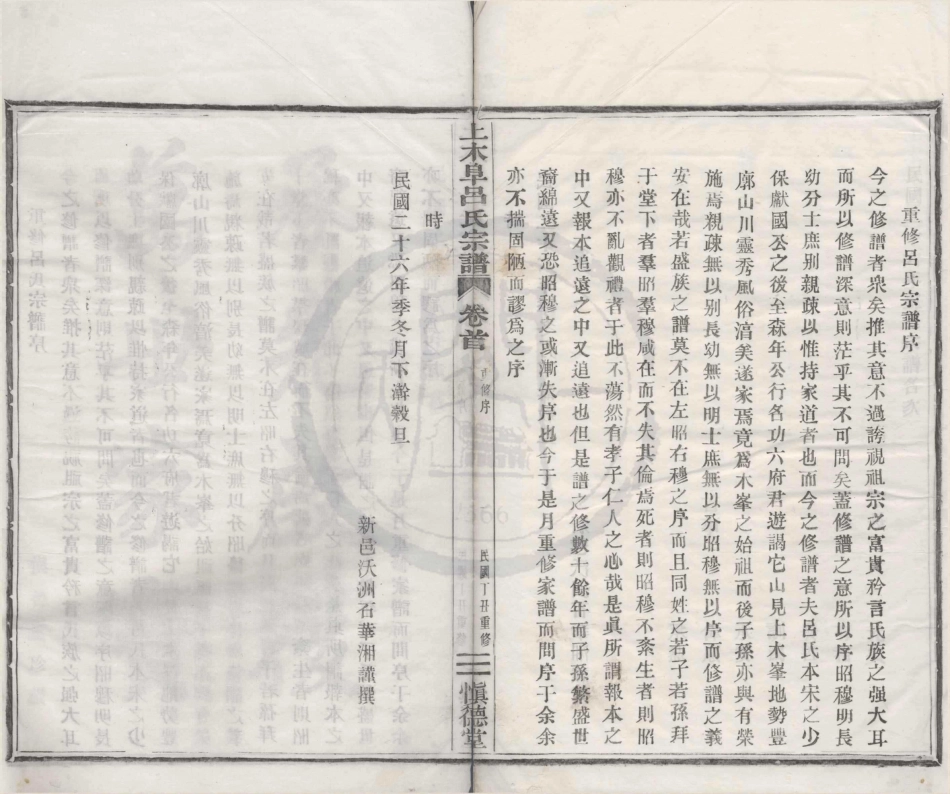 重修呂氏宗譜序
今之修譜者衆矣推其意不過誇視祖宗之富貴矜言氏族之强大耳
而所以修譜深意則茫乎其不可問矣蓋修譜之意所以序昭穆明長
幼分士庶别親疎以惟持家道者也而今之修譜者夫呂氏本宋之少
保獻國公之後至森年公行各功六府君遊謁它山見上木峯地勢豐
廓山川靈秀風俗淳美遂家焉竟爲木峯之始祖而後子孫亦與有榮
施焉親疎無以别長幼無以明士庶無以分昭穆無以序而修譜之義
安在哉若盛族之譜莫不在左昭右穆之序而且同姓之若子若孫拜
于堂下者羣昭羣穆咸在而不失其倫焉死者則昭穆不紊生者則昭
穆亦不亂觀禮者于此不蕩然有孝子仁人之心哉是眞所謂報本之
中又報本追遠之中又追遠也但是譜之修數十餘年而子孫繁盛世
裔綿遠又恐昭穆之或漸失序也今于是月重修家譜而問序于余余
亦不揣固陋而謬爲之序
上木阜呂氏宗譜 卷首 重修序 民國丁丑重修 三 愼德堂
時
民國二十六年季冬月下澣榖旦
新邑沃洲石華湘謹撰